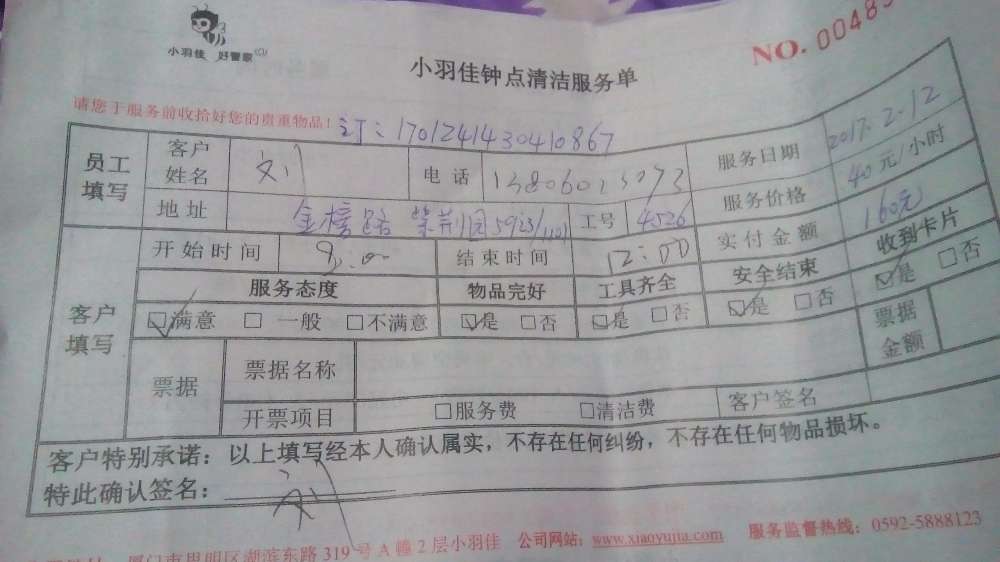 小羽佳 好管家
NO. 00485
小羽佳钟点清洁服务单
请您于服务前收拾好您的贵重物品!
订:1701241430410867
员工填写 客户姓名 刘 电话 13806013073 服务日期 2017.2.12
地址 金榜路 紫荆园 工号 4526 服务价格 40元/小时
客户填写 开始时间 9:00 结束时间 12:00 实付金额 160元
服务态度 物品完好 工具齐全 安全结束 收到卡片
满意 一般 不满意 是 否 是 否 是 否 是 否
票据 票据名称 票据金额
开票项目 服务费 清洁费 客户签名
客户特别承诺:以上填写经本人确认属实,不存在任何纠纷,不存在任何物品损坏。
特此确认签名: 刘
厦门市思明区湖滨东路319号A幢2层小羽佳 公司网站:www.xiaoyujia.com 服务监督热线:0592-5888123